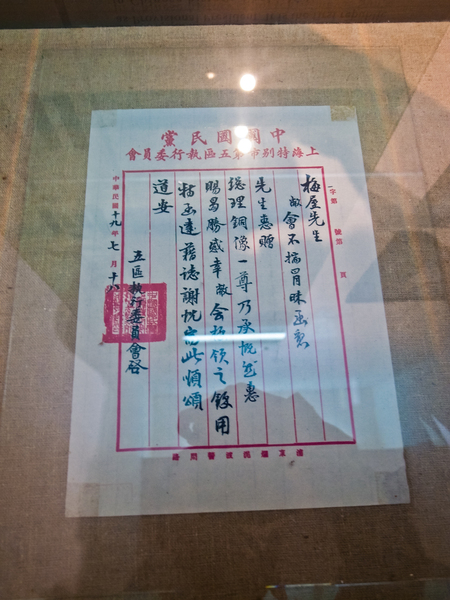 中國國民黨
上海特別市第五區執行委員會
字第 號第 頁
梅屋先生
敝會不揣冒昧函懇
先生惠贈
總理銅像一尊乃承慨然惠
賜曷勝感幸敝會拜領之餘用
特函達藉誌謝忱耑此順頌
道安
五區執行委員會啓
中華民國十九年七月十八